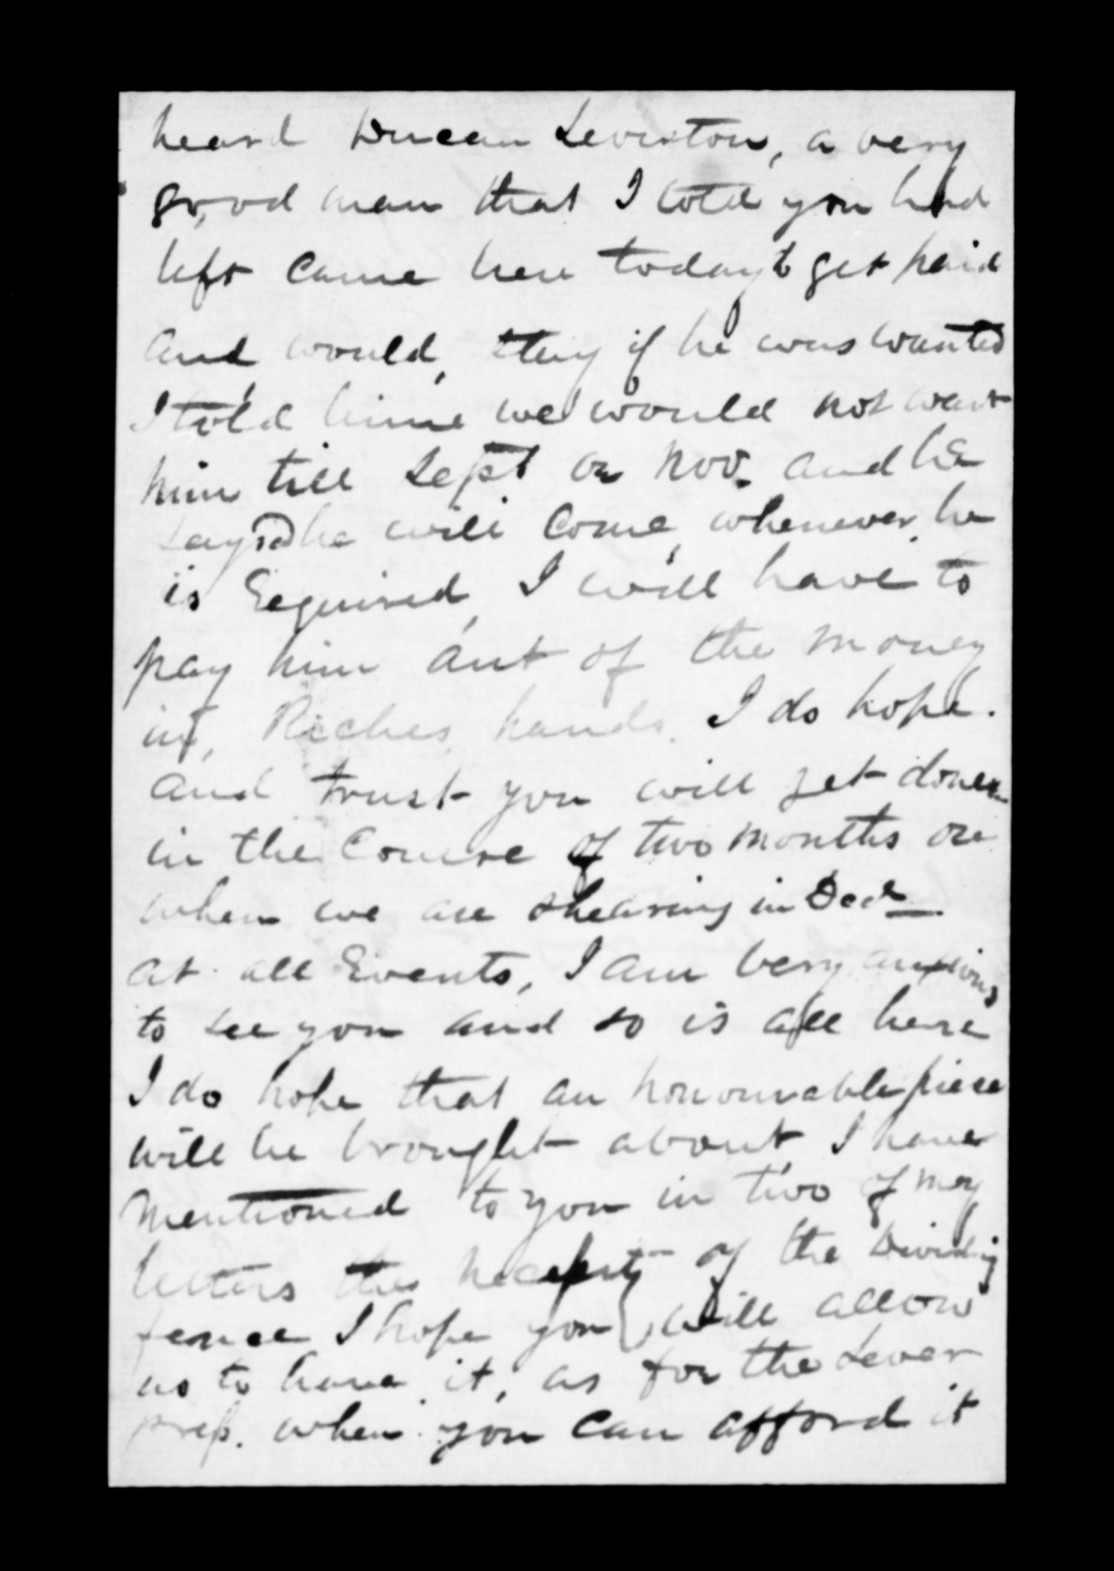 heard Duncan Leviston, a very
good man that I told you had
left came here today to get paid
and would, stay if he was wanted
I told him we would not want
him till Sept or Nov. and he
says he will come whenever he
is required, I will have to
pay him out of the money
in Riches hands. I do hope.
and trust you will get down
in the course of two months or
when we are shearing in Decr
at all Events, I am very anxious
to see you and so is all here
I do hope that an honourable piece
will be brought about I have
mentioned to you in two of my
letters the necessity of the Dividing
fence I hope you will allow
us to have it, as for the Lever
press. when you can afford it